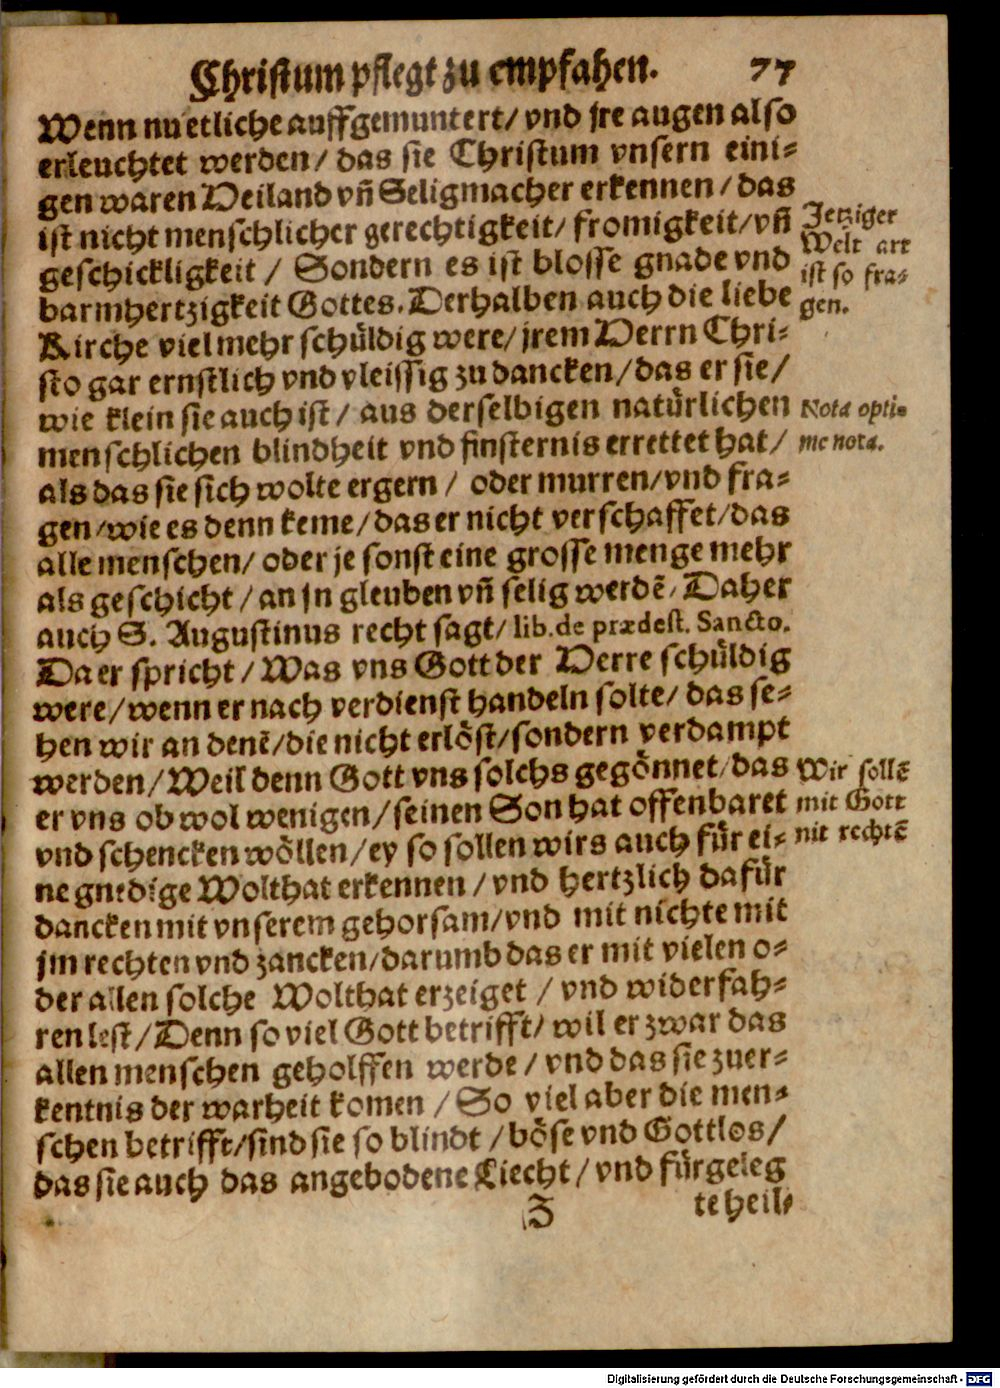 Christum pflegt zu empfahen. 77
Wenn nu etliche auffgemuntert/ vnd jre augen also
erleuchtet werden/ das sie Christum vnsern eini-
gen waren Heiland vñ Seligmacher erkennen/ das
ist nicht menschlicher gerechtigkeit/ fromigkeit/ vñ
geschickligkeit/ Sondern es ist blosse gnade vnd
barmhertzigkeit Gottes. Derhalben auch die liebe
Kirche viel mehr schüldig were/ jrem Herrn Chri-
sto gar ernstlich vnd vleissig zu dancken/ das er sie/
wie klein sie auch ist/ aus derselbigen natürlichen
menschlichen blindheit vnd finsternis errettet hat/
als das sie sich wolte ergern/ oder murren/ vnd fra-
gen/ wie es denn keme/ das er nicht verschaffet/ das
alle menschen/ oder je sonst eine grosse menge mehr
als geschicht/ an jn gleuben vñ selig werdē/ Daher
auch S. Augustinus recht sagt/ lib. de prædest. Sancto.
Da er spricht/ Was vns Gott der Herre schüldig
were/ wenn er nach verdienst handeln solte/ das se-
hen wir an denē/ die nicht erlöst/ sondern verdampt
werden/ Weil denn Gott vns solchs gegönnet/ das
er vns ob wol wenigen/ seinen Son hat offenbaret
vnd schencken wöllen/ ey so sollen wirs auch für ei-
ne gnedige Wolthat erkennen/ vnd hertzlich dafür
dancken mit vnserem gehorsam/ vnd mit nichte mit
jm rechten vnd zancken/ darumb das er mit vielen o-
der allen solche Wolthat erzeiget/ vnd widerfah-
ren lest/ Denn so viel Gott betrifft/ wil er zwar das
allen menschen geholffen werde/ vnd das sie zu er-
kentnis der warheit komen/ So viel aber die men-
schen betrifft/ sind sie so blindt/ böse vnd Gottlos/
das sie auch das angebodene Liecht/ vnd fürgeleg
J te heil-
Jetziger
Welt art
ist so fra-
gen.
Nota opti-
me nota.
Wir sollē
mit Gott
nit rechtē
Digitalisierung gefördert durch die Deutsche Forschungsgemeinschaft - DFG